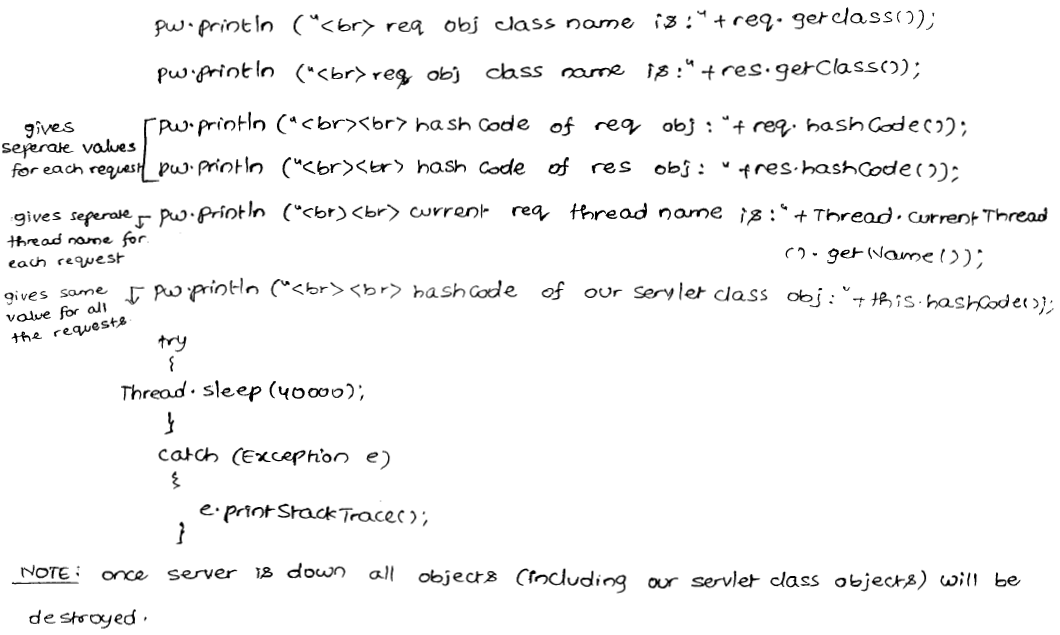 pw.println ("<br> req obj class name is:"+req.getclass());
pw.println ("<br>req obj class name is:"+res.getClass());
gives seperate values for each request
pw.println ("<br><br> hash Code of req obj : "+ req.hashCode());
pw.println ("<br><br> hash Code of res obj: "+res.hashCode());
gives seperate thread name for each request
pw.println ("<br><br> current req thread name is:"+Thread.currentThread
().getName());
gives same value for all the requests
pw.println ("<br><br> hashcode of our servlet class obj:"+this.hashCode();
try
{
Thread.sleep(40000);
}
catch (Exception e)
{
e.printStackTrace();
}
NOTE: once server is down all objects (including our servlet class objects) will be
destroyed.